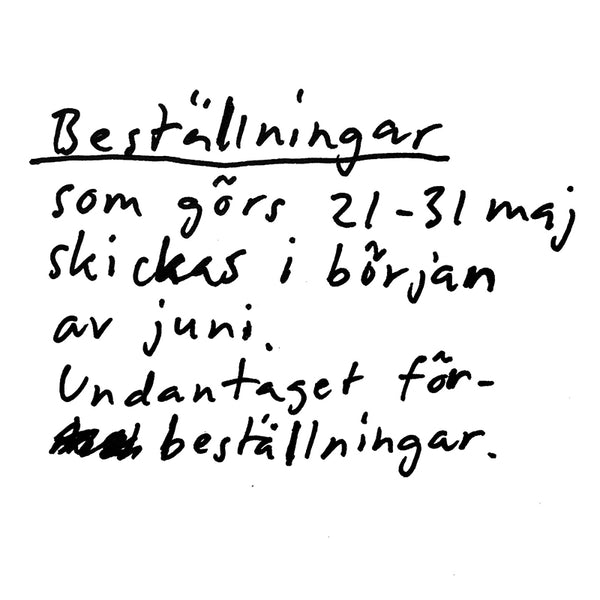 Beställningar
som görs 21-31 maj
skickas i början
av juni.
Undantaget för-
beställningar.